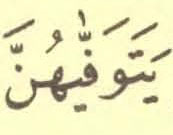 يَتَوَفّٰيهُنَّ